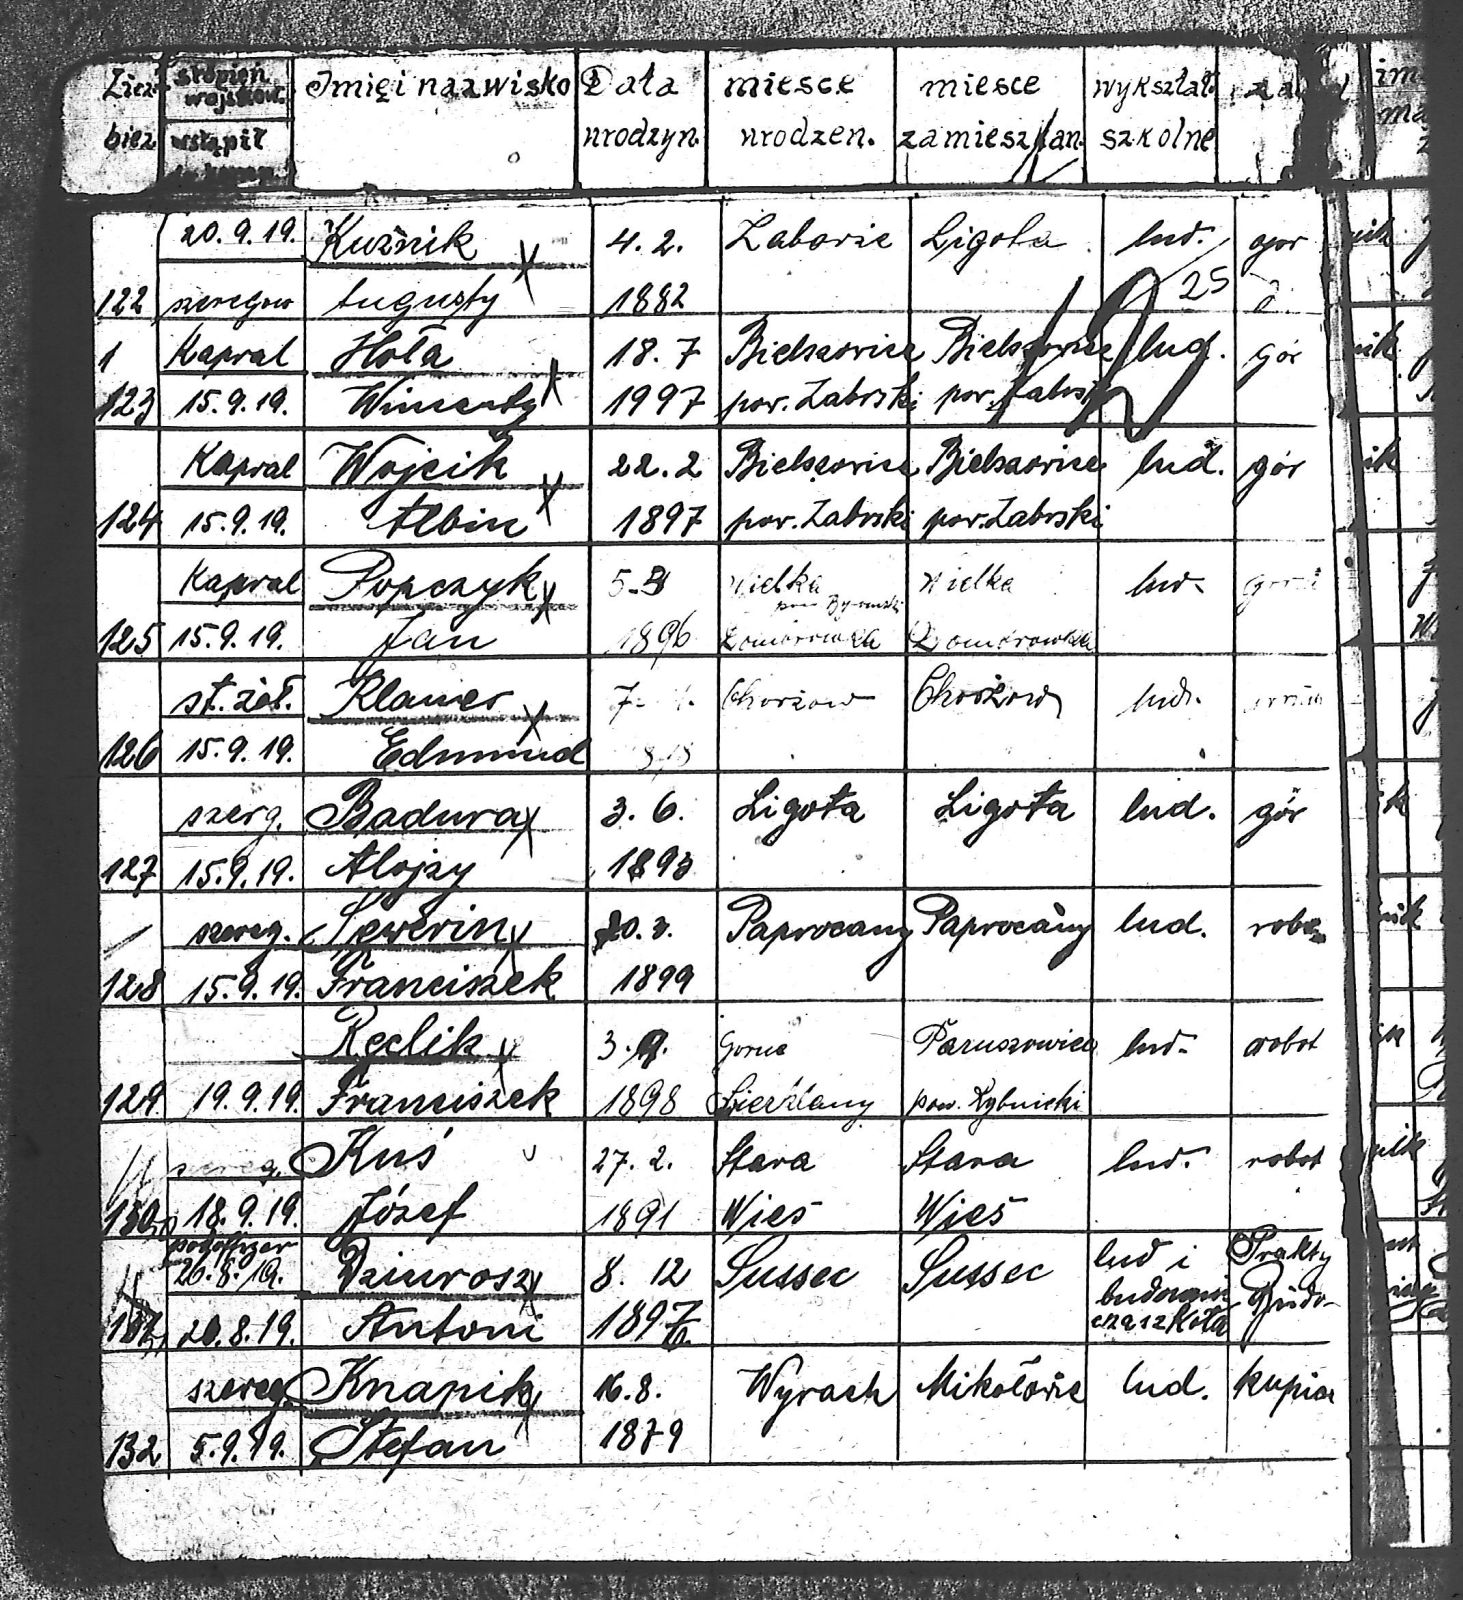 Liczb stopień wojskow. Imię i nazwisko Data miesce miesce wykształ.
bież wstąpił urodzyn. urodzen. zamieszkan. szkolne
20.9.19. Kuźnik 4. 2. Zaborze Ligota lud. gór
122 szeregow Augusty 1882 25
1 Kapral Hoła 18. 7 Bielszowice Bielszowice lud. gór nik
123 15.9.19. Wincenty 1997 pow. Zabrski pow. Zabrski
Kapral Wojcik 22. 2 Bielszowice Bielszowice lud. gór nik
124 15.9.19. Albin 1897 pow. Zabrski pow. Zabrski
Kapral Popczyk 5. 3 Wielka Wielka lud.
125 15.9.19. Jan 1896 Dombrowka Dombrowka
st. żoł. Klamer 7. Chorzow Chorzow lud.
126 15.9.19. Edmund
szerg. Badura 3. 6. Ligota Ligota lud. gór
127 15.9.19. Alojzy 1893
szereg. Sewerin 20. 3. Paprocany Paprocany lud. robo nik
128 15.9.19. Franciszek 1899
Reclik 3. 9. Gorne Paruszowiec lud. robot
129 19.9.19. Franciszek 1898 pow. Rybnicki
szereg. Kuś 27. 2. Stara Stara lud. robot nik
130 18.9.19. Józef 1891 Wieś Wieś
podoficer
20.8.19. Dziurosz 8. 12 Sussec Sussec lud i Prakty
budowni Budo-
20.8.19. Antoni 1897 cza szkoła
szereg. Knapik 16. 8. Wyrach Mikołowie lud. kupiec
132 5.9.19. Stefan 1879